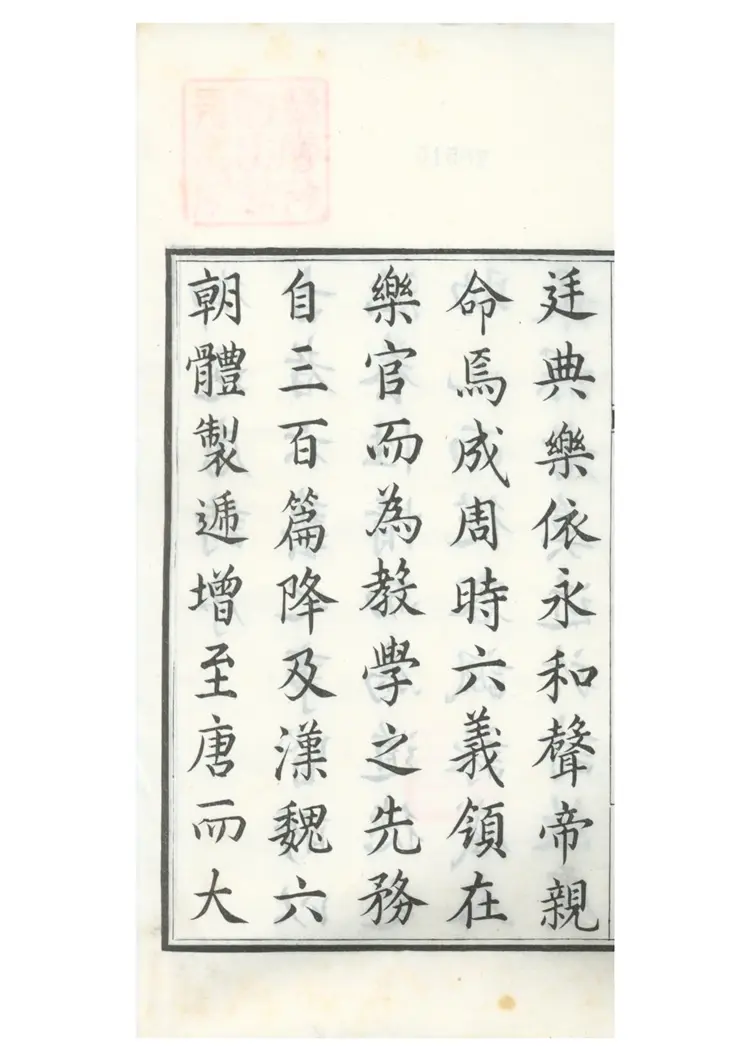 廷典樂依永和聲帝親
命焉成周時六義領在
樂官而為教學之先務
自三百篇降及漢魏六
朝體製遞增至唐而大